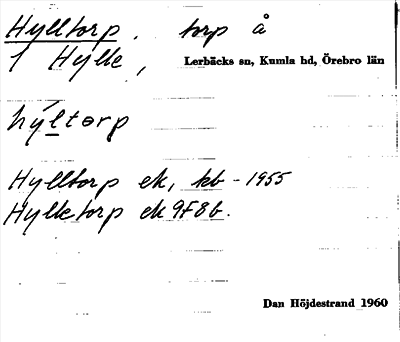 Hylltorp. torp å
1 Hylle, Lerbäcks sn, Kumla hd, Örebro län
hýltɵrp
Hylltorp ek, kb - 1955
Hylletorp ek 9F8b.
Dan Höjdestrand 1960